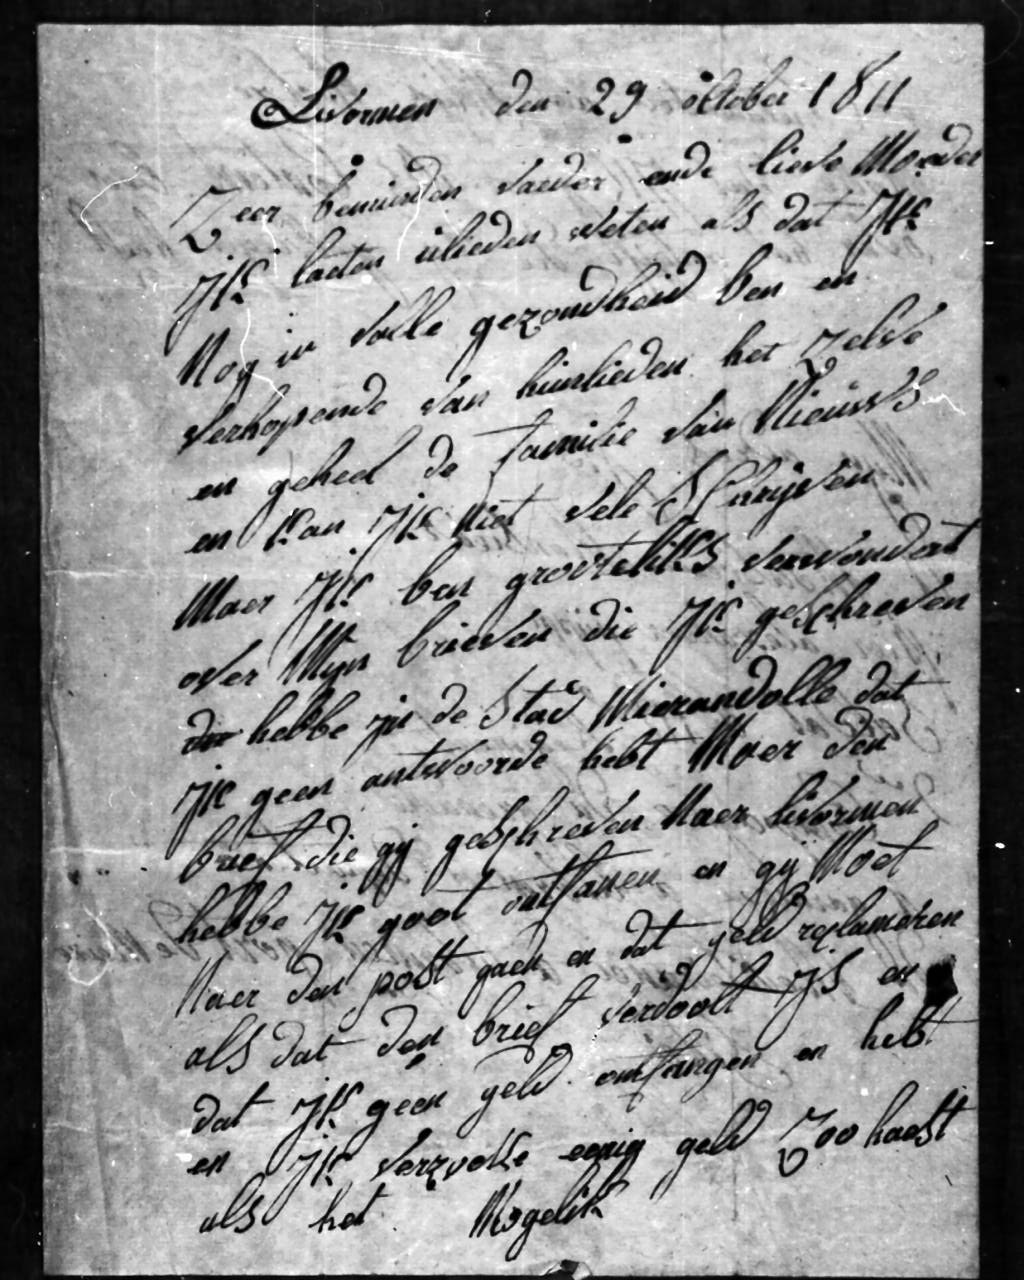 Livornen den 29 oktober 1811
Zeer beminden vaeder ende lieve Moeder
Jk laeten ulieden weten als dat Jk
Nog in volle gezondheid ben en
verhopende van hunlieden het zelve
en geheel de familie van Nieuws
en kan Jk Niet vele Schrijven
Maer Jk ben grooteliks verwondert
over Mijn brieven die Jk geschreven
hebbe in de Stad Mierandolle dat
Jk geen antwoorde hebt Maer den
brief die gij geschreven Naer livornen
hebbe Jk goet ontfaen en gij Moet
Naer den post gaen en dat geld reglameren
als dat den brief verdoolt is en
dat Jk geen geld ontfangen en hebt
en Jk verzoeke eenig geld Zoo haest
als het Mogelik